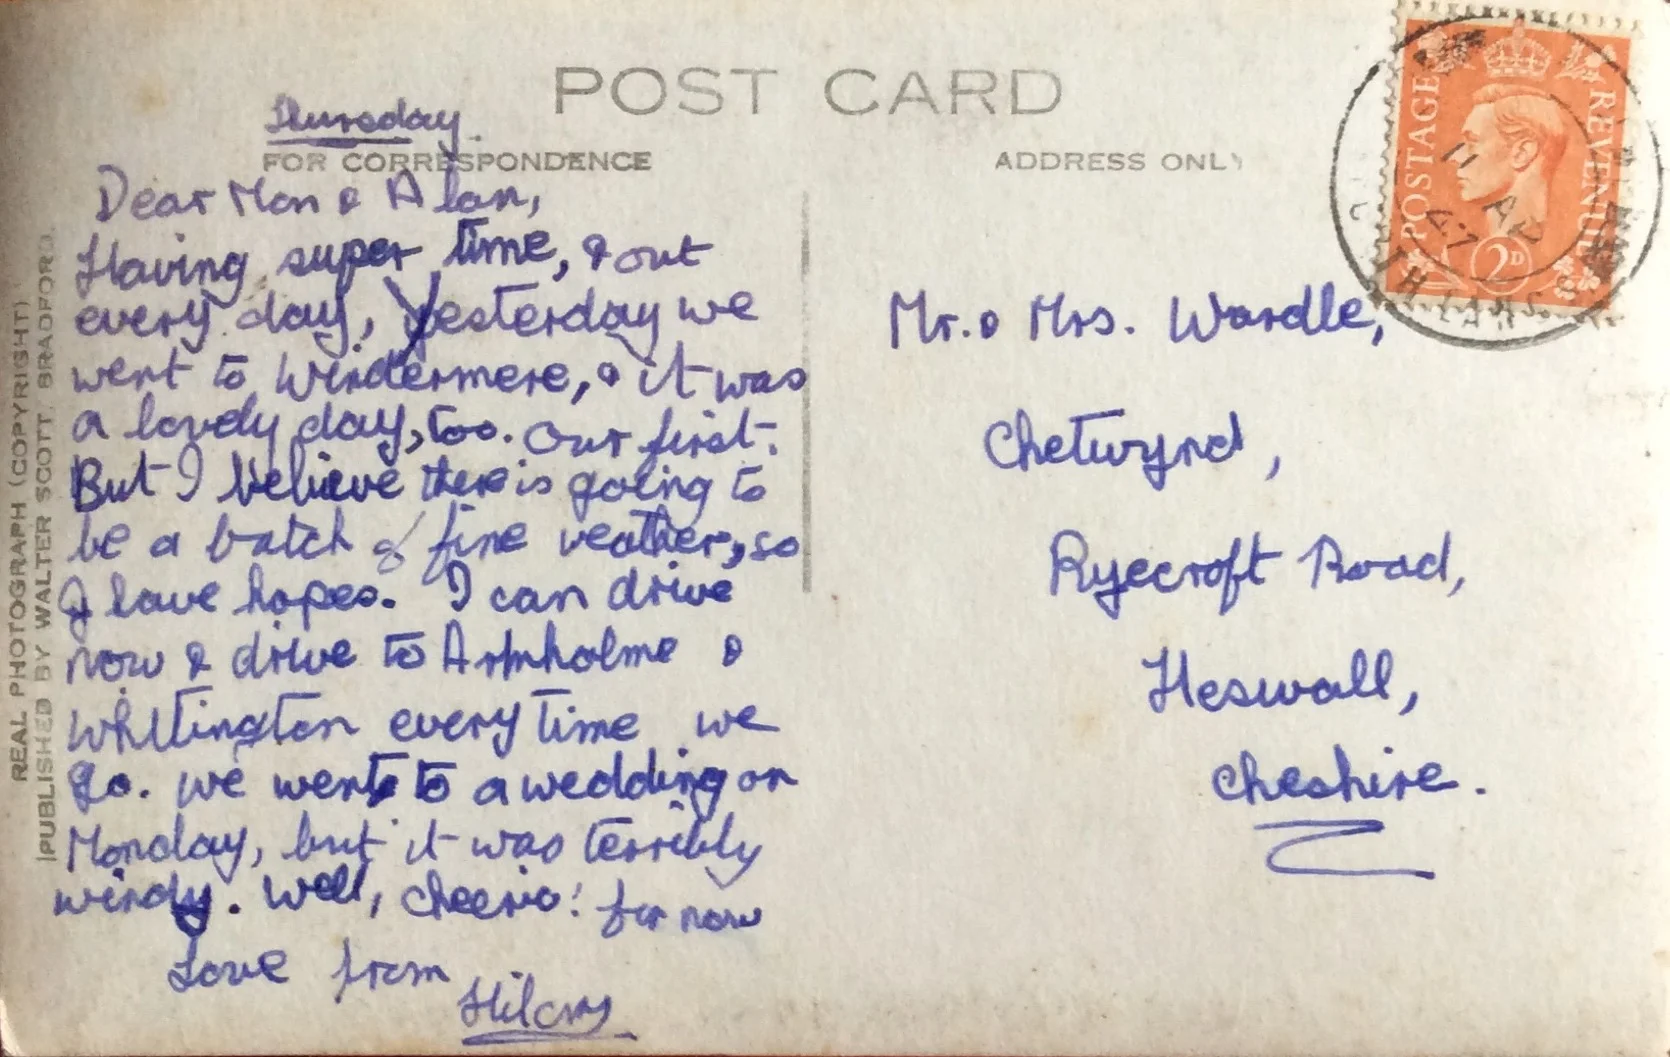 POST CARD
FOR CORRESPONDENCE
ADDRESS ONLY
Thursday.
Dear Mon & Alan,
Having super time, & out
every day, Yesterday we
went to Windermere, & it was
a lovely day, too. Our first.
But I believe there is going to
be a batch of fine weather, so
I have hopes. I can drive
now & drive to Arnholme &
Whittington every time we
go. We went to a wedding on
Monday, but it was terribly
windy. Well, cheerio! for now
Love from
Hilary
Mr. & Mrs. Wardle,
Chetwynd,
Ryecroft Road,
Heswall,
Cheshire.
POSTAGE REVENUE
2D
11 AP
47
REAL PHOTOGRAPH (COPYRIGHT)
(PUBLISHED BY WALTER SCOTT, BRADFORD).